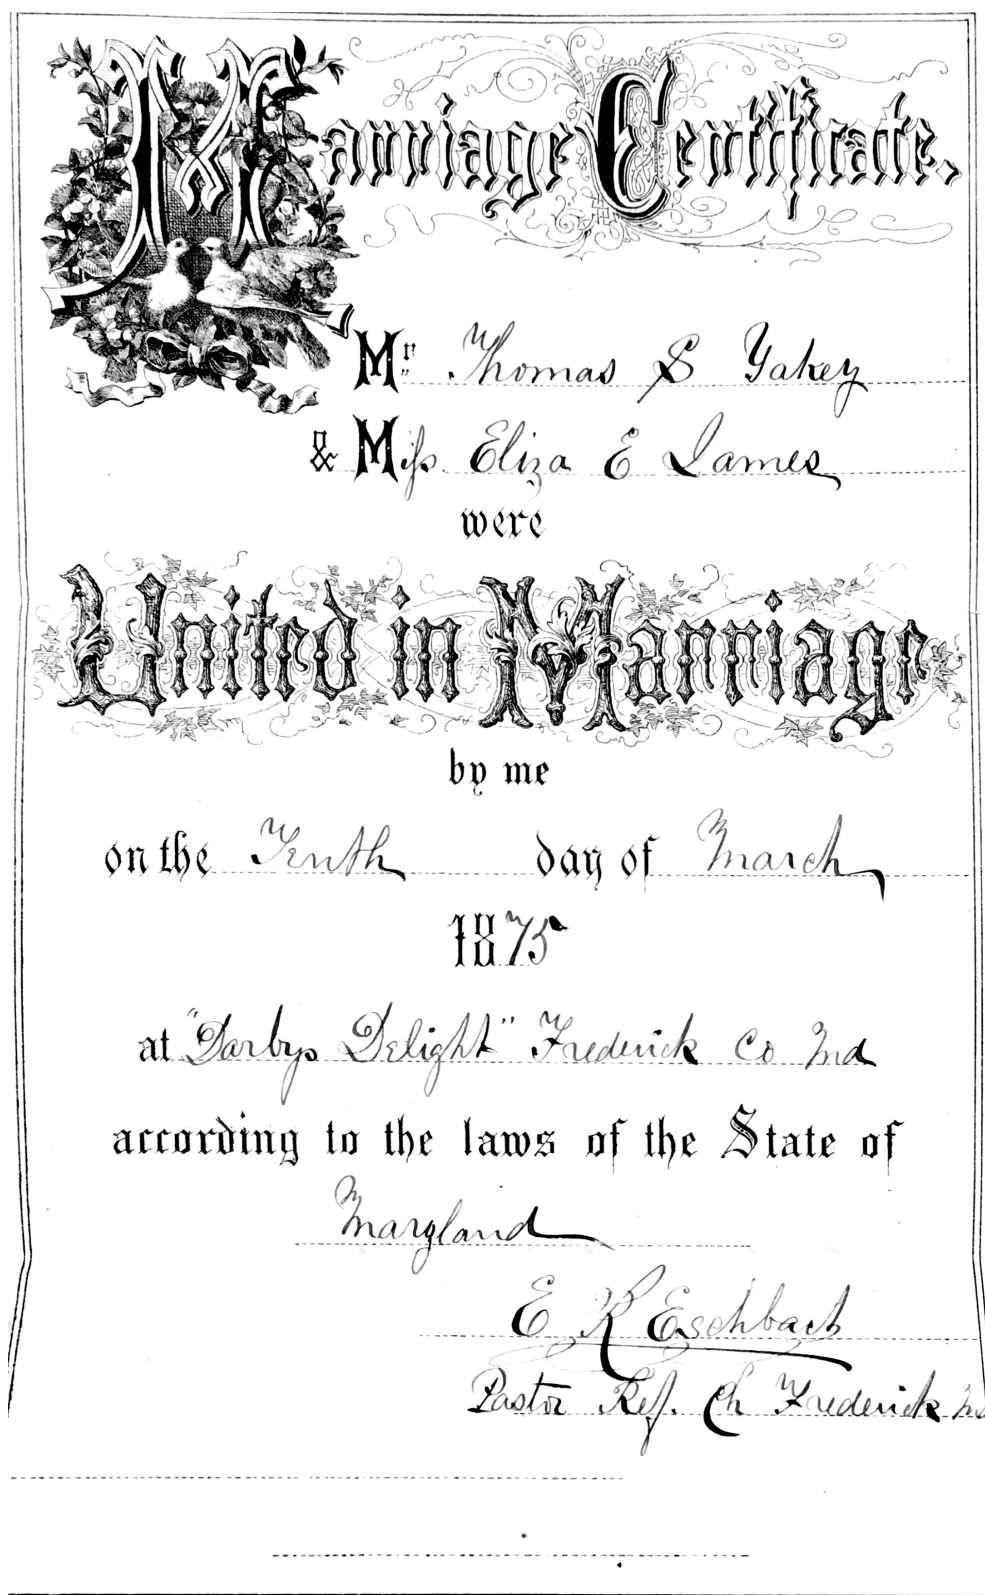 Marriage Certificate.
Mr. Thomas S Yakey
& Miss Eliza E James
were
United in Marriage
by me
on the Tenth day of March
1875
at "Darbys Delight" Frederick Co Md
according to the laws of the State of
Maryland
E R Eschbach
Pastor Ref. Ch Frederick Md